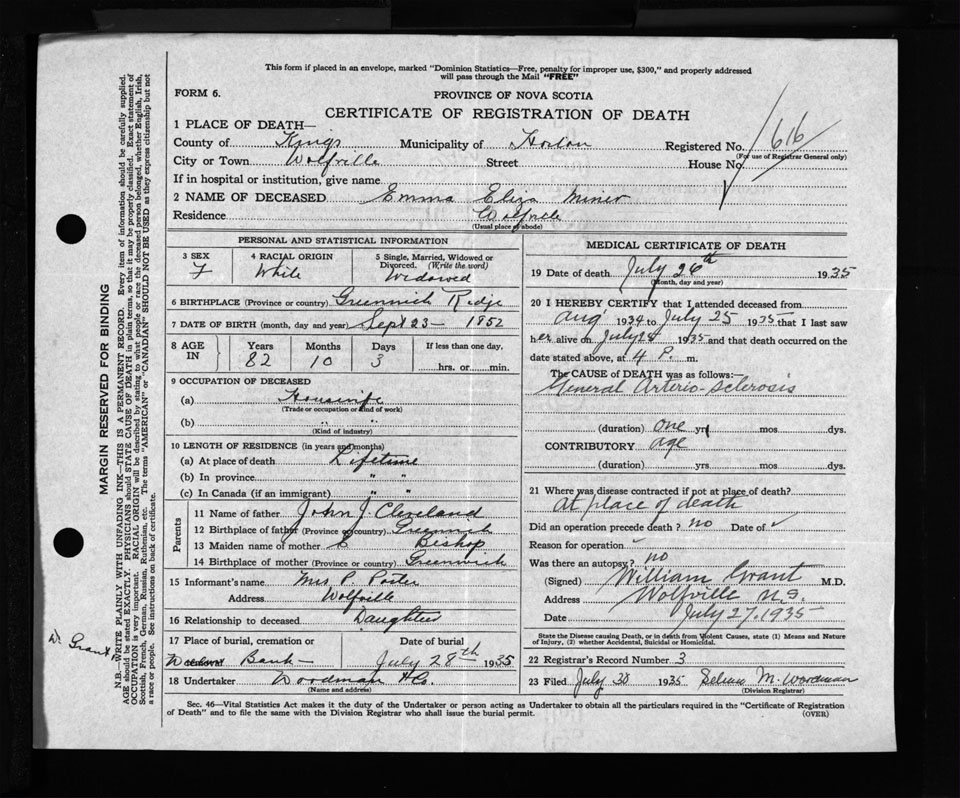 This form if placed in an envelope, marked "Dominion Statistics—Free, penalty for improper use, $300," and properly addressed
will pass through the Mail "FREE"
FORM 6.
PROVINCE OF NOVA SCOTIA
CERTIFICATE OF REGISTRATION OF DEATH
1 PLACE OF DEATH—
County of Kings Municipality of Horton Registered No. 616
(For use of Registrar General only)
City or Town Wolfville Street House No.
If in hospital or institution, give name
2 NAME OF DECEASED Emma Eliza Miner
Residence Wolfville
(Usual place of abode)
PERSONAL AND STATISTICAL INFORMATION
3 SEX 4 RACIAL ORIGIN 5 Single, Married, Widowed or
Divorced. (Write the word)
F White Widowed
6 BIRTHPLACE (Province or country) Greenwich Ridge
7 DATE OF BIRTH (month, day and year) Sept 23- 1852
8 AGE IN Years Months Days If less than one day,
82 10 3 hrs. or min.
9 OCCUPATION OF DECEASED
(a) Housewife
(Trade or occupation or kind of work)
(b) " "
(Kind of industry)
10 LENGTH OF RESIDENCE (in years and months)
(a) At place of death Lifetime
(b) In province " "
(c) In Canada (if an immigrant) " "
Parents
11 Name of father John J. Cleveland
12 Birthplace of father (Province or country) Greenwich
13 Maiden name of mother E Bishop
14 Birthplace of mother (Province or country) Greenwich
15 Informant's name Mrs P. Porter
Address Wolfville
16 Relationship to deceased Daughter
17 Place of burial, cremation or Date of burial
Bank July 28th 1935
18 Undertaker Woodman & Co.
(Name and address)
MEDICAL CERTIFICATE OF DEATH
19 Date of death July 26th 1935
(Month, day and year)
20 I HEREBY CERTIFY that I attended deceased from
Aug 1934 to July 25 1935 that I last saw
her alive on July 25 1935 and that death occurred on the
date stated above, at 4 P. m.
The CAUSE of DEATH was as follows:—
General Arterio-Sclerosis
(duration) one yrs mos dys.
CONTRIBUTORY age
(duration) yrs mos dys.
21 Where was disease contracted if not at place of death?
At place of death
Did an operation precede death? no Date of ✓
Reason for operation ✓
Was there an autopsy? no
(Signed) William Grant M.D.
Address Wolfville N.S.
Date July 27, 1935
State the Disease causing Death, or in death from Violent Causes, state (1) Means and Nature
of Injury, (2) whether Accidental, Suicidal or Homicidal.
22 Registrar's Record Number 3
23 Filed July 30 1935 M. Woodman
(Division Registrar)
Sec. 46—Vital Statistics Act makes it the duty of the Undertaker or person acting as Undertaker to obtain all the particulars required in the "Certificate of Registration
of Death" and to file the same with the Division Registrar who shall issue the burial permit. (OVER)
MARGIN RESERVED FOR BINDING
N.B.—WRITE PLAINLY WITH UNFADING INK—THIS IS A PERMANENT RECORD. Every item of information should be carefully supplied.
AGE should be stated EXACTLY. PHYSICIANS should STATE CAUSE OF DEATH in plain terms, so that it may be properly classified. Exact statement of
OCCUPATION is very important. RACIAL ORIGIN will be described by stating to what people or race the deceased person belonged, whether English, Irish,
Scottish, French, German, Russian, Ruthenian, etc. The terms "AMERICAN" or "CANADIAN" SHOULD NOT BE USED as they express citizenship but not
a race or people. See instructions on back of certificate.
Dr. Grant